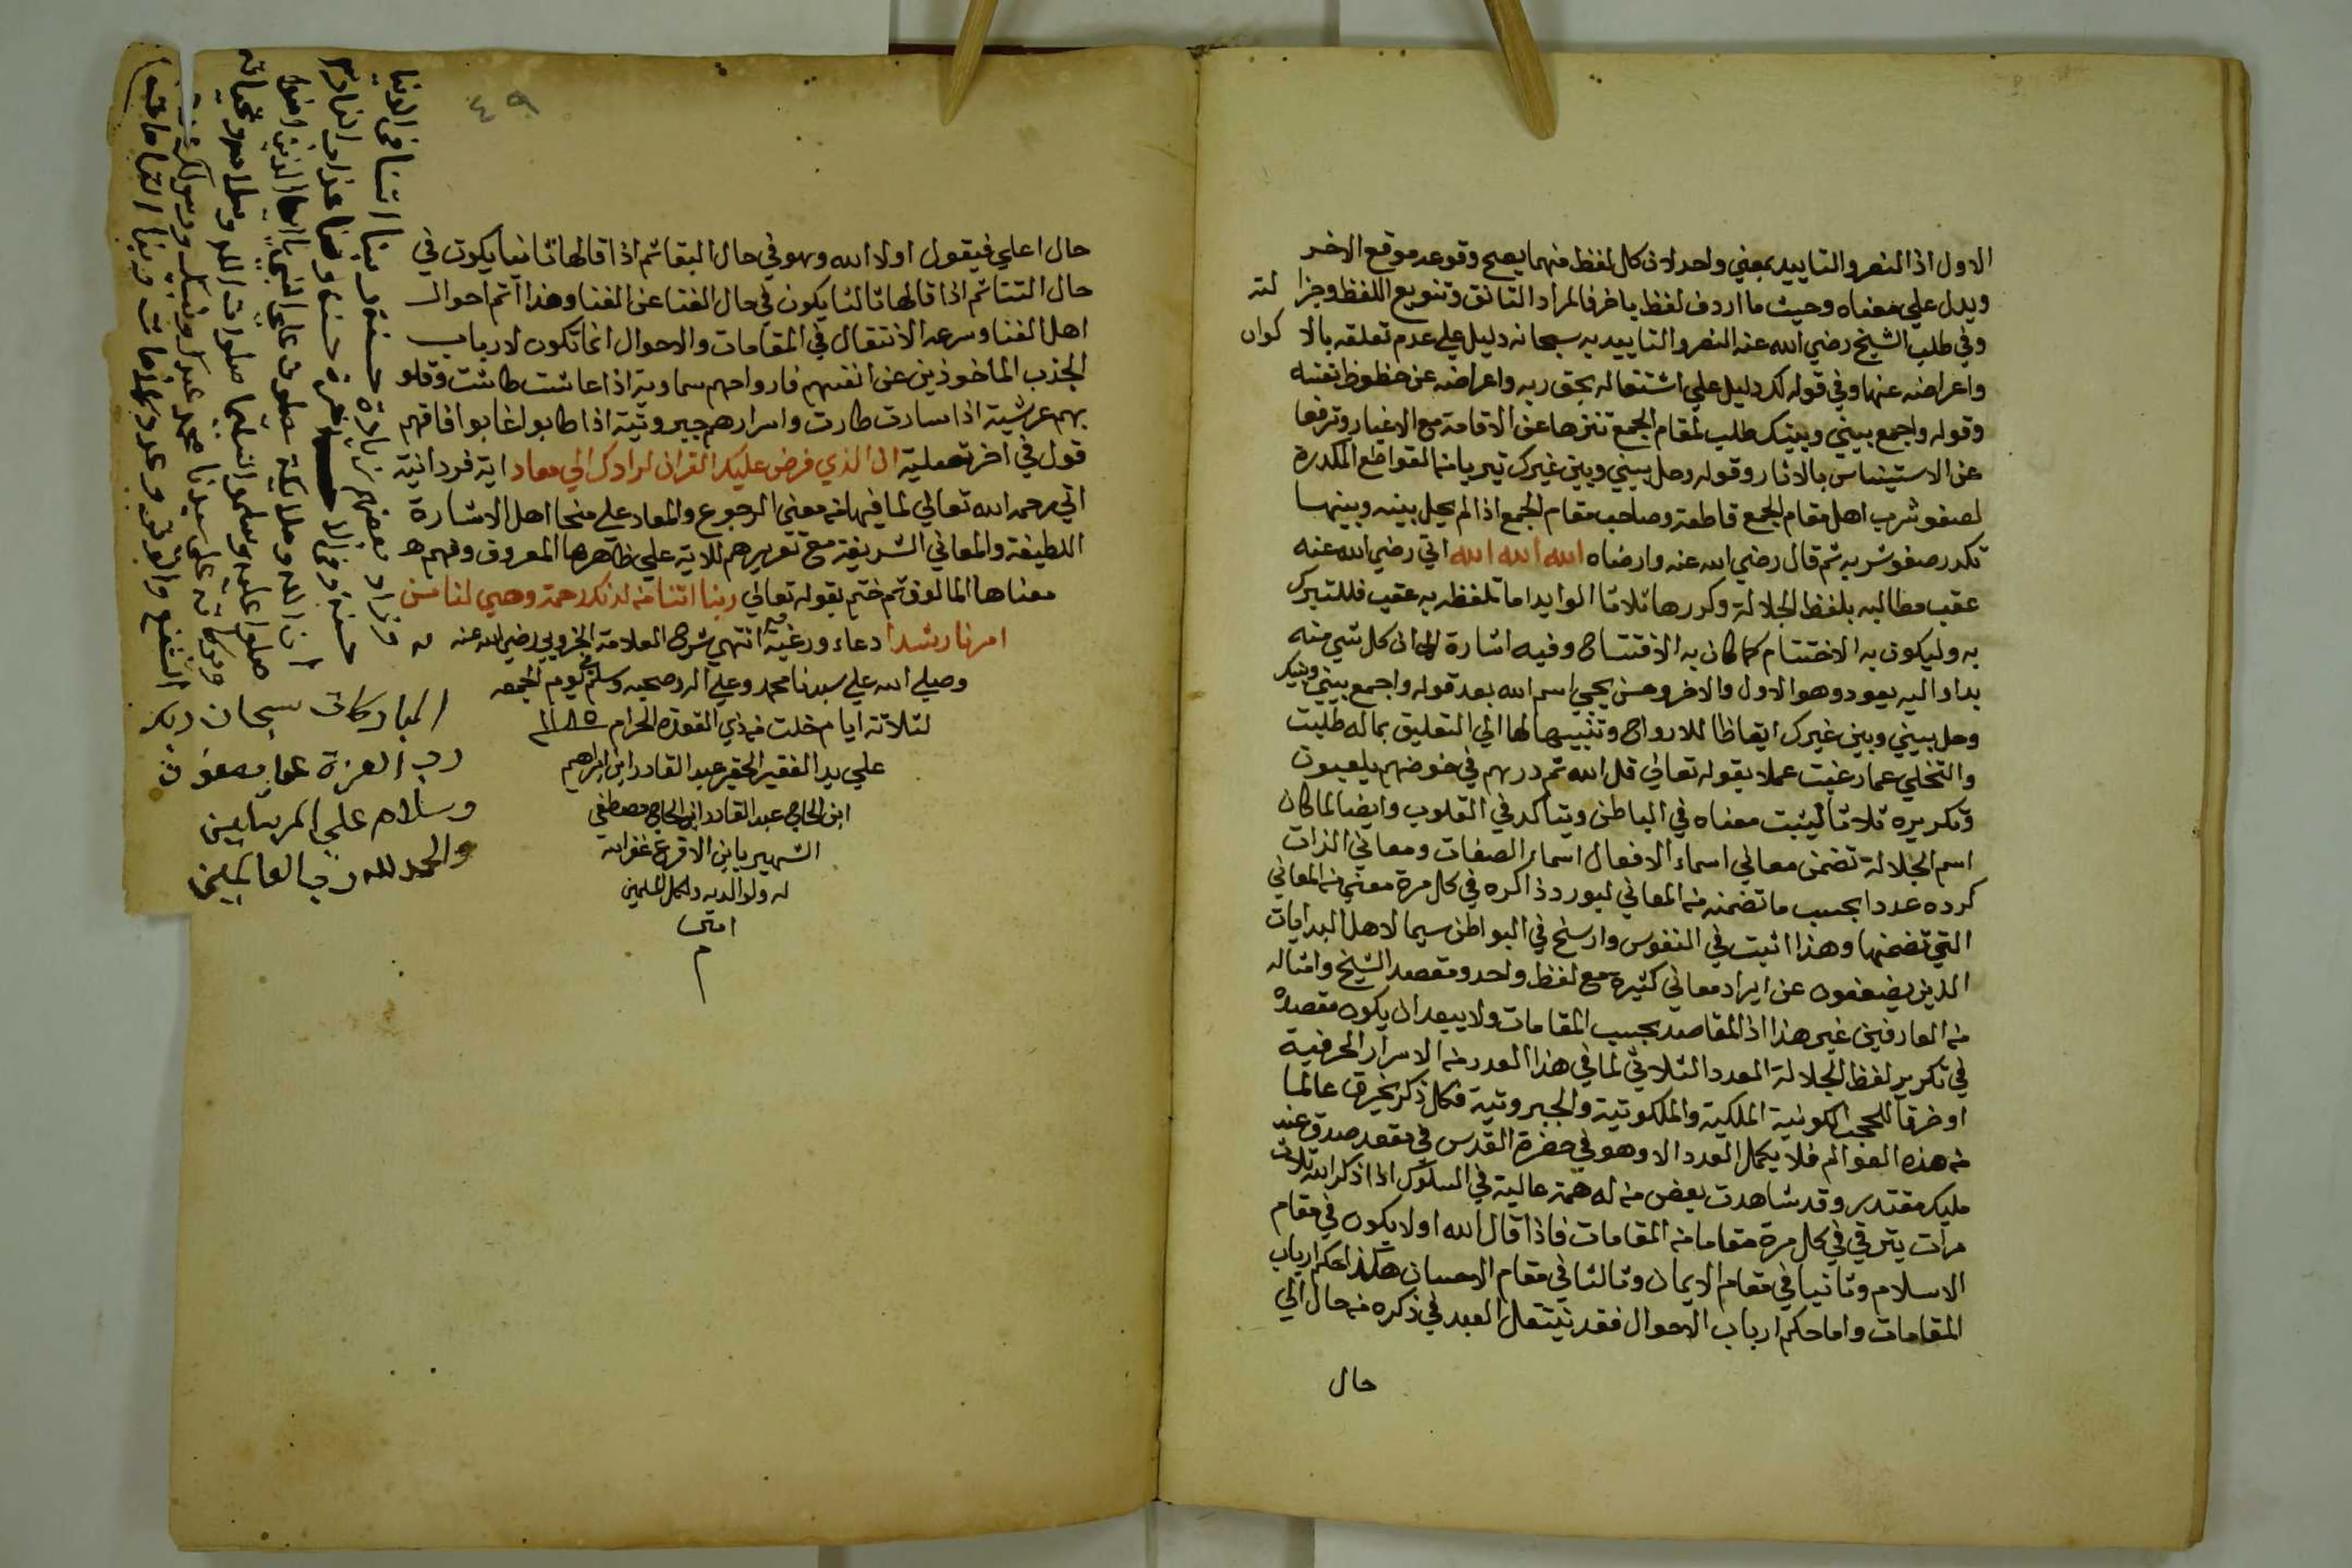 الاول اذ النصر والتاييد بمعني واحد لان كل لفظ منهما يصح وقوعه موقع الاخر
ويدل علي معناه وحيث ما اردف لفظ باخر فالمراد التانق وتنويع اللفظ وجزالته
وفي طلب الشيخ رضي الله عنه النصر والتاييد به سبحانه دليل علي عدم تعلقه بالاكوان
واعراضه عنها وفي قوله لك دليل علي اشتغاله بحق ربه واعراضه عن حظوظ نفسه
وقوله واجمع بيني وبينك طلب لمقام الجمع تنزها عن الاقامة مع الاغيار وترفعا
عن الاستيناس بالاثار وقوله وحل بيني وبين غيرك تبريا من القواطع المكدرة
لصفو شرب اهل مقام الجمع قاطعة وصاحب مقام الجمع اذا لم يحل بينه وبينها
تكدر صفو شربه ثم قال رضي الله عنه وارضاه الله الله الله اتي رضي الله عنه
عقب مطالبه بلفظ الجلالة وكررها ثلاثا اما تلفظه به عقب فللتبرك
به وليكون به الاختتام كما كان به الافتتاح وفيه اشارة الي ان كل شي منه
بدا واليه يعود وهو الاول والاخر وحسن يجي اسم الله بعد قوله واجمع بيني وبينك
وحل بيني وبين غيرك ايقاظا للارواح وتنبيها لها الي التعليق بما له طلبت
والتخلي عما رغبت عملا بقوله تعالي قل الله ثم درهم في خوضهم يلعبون
وتكريره ثلاثا ليثبت معناه في الباطن ويتاكد في القلوب وايضا لما كان
اسم الجلالة تضمن معاني اسماء الافعال اسماء الصفات ومعاني الذات
كرده عددا بحسب ما تضمنه من المعاني ليورد ذاكره في كل مرة معني من المعاني
التي تضمنها وهذا اثبت في النفوس وارسخ في البواطن سيما لاهل البدايات
الذين يضعفون عن ايراد معاني كثيرة مع لفظ واحد ومقصد الشيخ وامثاله
من العارفين غير هذا اذ المقاصد بحسب المقامات ولا يبعد ان يكون مقصده
في تكرير لفظ الجلالة العدد الثلاثي لما في هذا العدد من الاسرار الحرفية
او خرقا للحجب الكونية الملكية والملكوتية والجبروتية فكل ذكر يخرق عالما
من هذه العوالم فلا يكمل العدد الا وهو في حضرة القدس في مقعد صدق عند
مليك مقتدر وقد شاهدت بعض من له همة عالية في السلوك اذا ذكر الله ثلاث
مرات يترقي في كل مرة مقاما من المقامات فاذا قال الله اولا يكون في مقام
الاسلام وثانيا في مقام الايمان وثالثا في مقام الاحسان هكذا حكم ارباب
المقامات واما حكم ارباب الاحوال فقد ينتقل العبد في ذكره من حال الي
حال
٤٩
حال اعلي فيقول اولا الله وهو في حال البقا ثم اذا قالها ثانيا يكون في
حال الفنا ثم اذا قالها ثالثا يكون في حال الفنا عن الفنا وهذا اتم احوال
اهل الفنا وسرعة الانتقال في المقامات والاحوال انما تكون لارباب
الجذب الماخوذين عن انفسهم فارواحهم سماوية اذا عاشت طاشت وقلو
بهم عرشية اذا سارت طارت واسرارهم جبروتية اذا طابوا غابوا فافهم
قول في اخر تصلية ان الذي فرض عليك القران لرادك الي معاد اية فردانية
اتي رحمه الله تعالي لما فيها من معني الرجوع والمعاد علي منحا اهل الاشارة
اللطيفة والمعاني الشريفة مع تقريرهم للاية علي ظاهرها المعروف وفهم
معناها المالوف ثم ختم بقوله تعالي ربنا اتنا من لدنك رحمة وهيي لنا من
امرنا رشدا دعاء ورغبة انتهي شرح العلامة الخروبي رضي الله عنه
وصلي الله علي سيدنا محمد وعلي اله وصحبه وسلم يوم الجمعه
لثلاثة ايام خلت من ذي القعده الحرام
علي يد الفقير الحقير عبد القادر ابن ابراهيم
ابن الحاج عبد القادر ابن الحاج مصطفي
الشهير بابن الاقرع غفر الله
له ولوالديه ولكل المسلمين
امين
م
ربنا اتنا في الدنيا
حسنة وفي الاخرة حسنة وقنا عذاب النار
ان الله وملايكته يصلون علي النبي يا ايها الذين امنوا
صلوا عليه وسلموا تسليما صلوات الله وسلامه وتحياته
وبركاته علي سيدنا محمد عبدك ونبيك ورسولك
الشفع والوتر وعدد كلمات ربنا التامات
المباركات سبحان ربك
رب العزة عما يصفون
وسلام علي المرسلين
والحمد لله رب العالمين